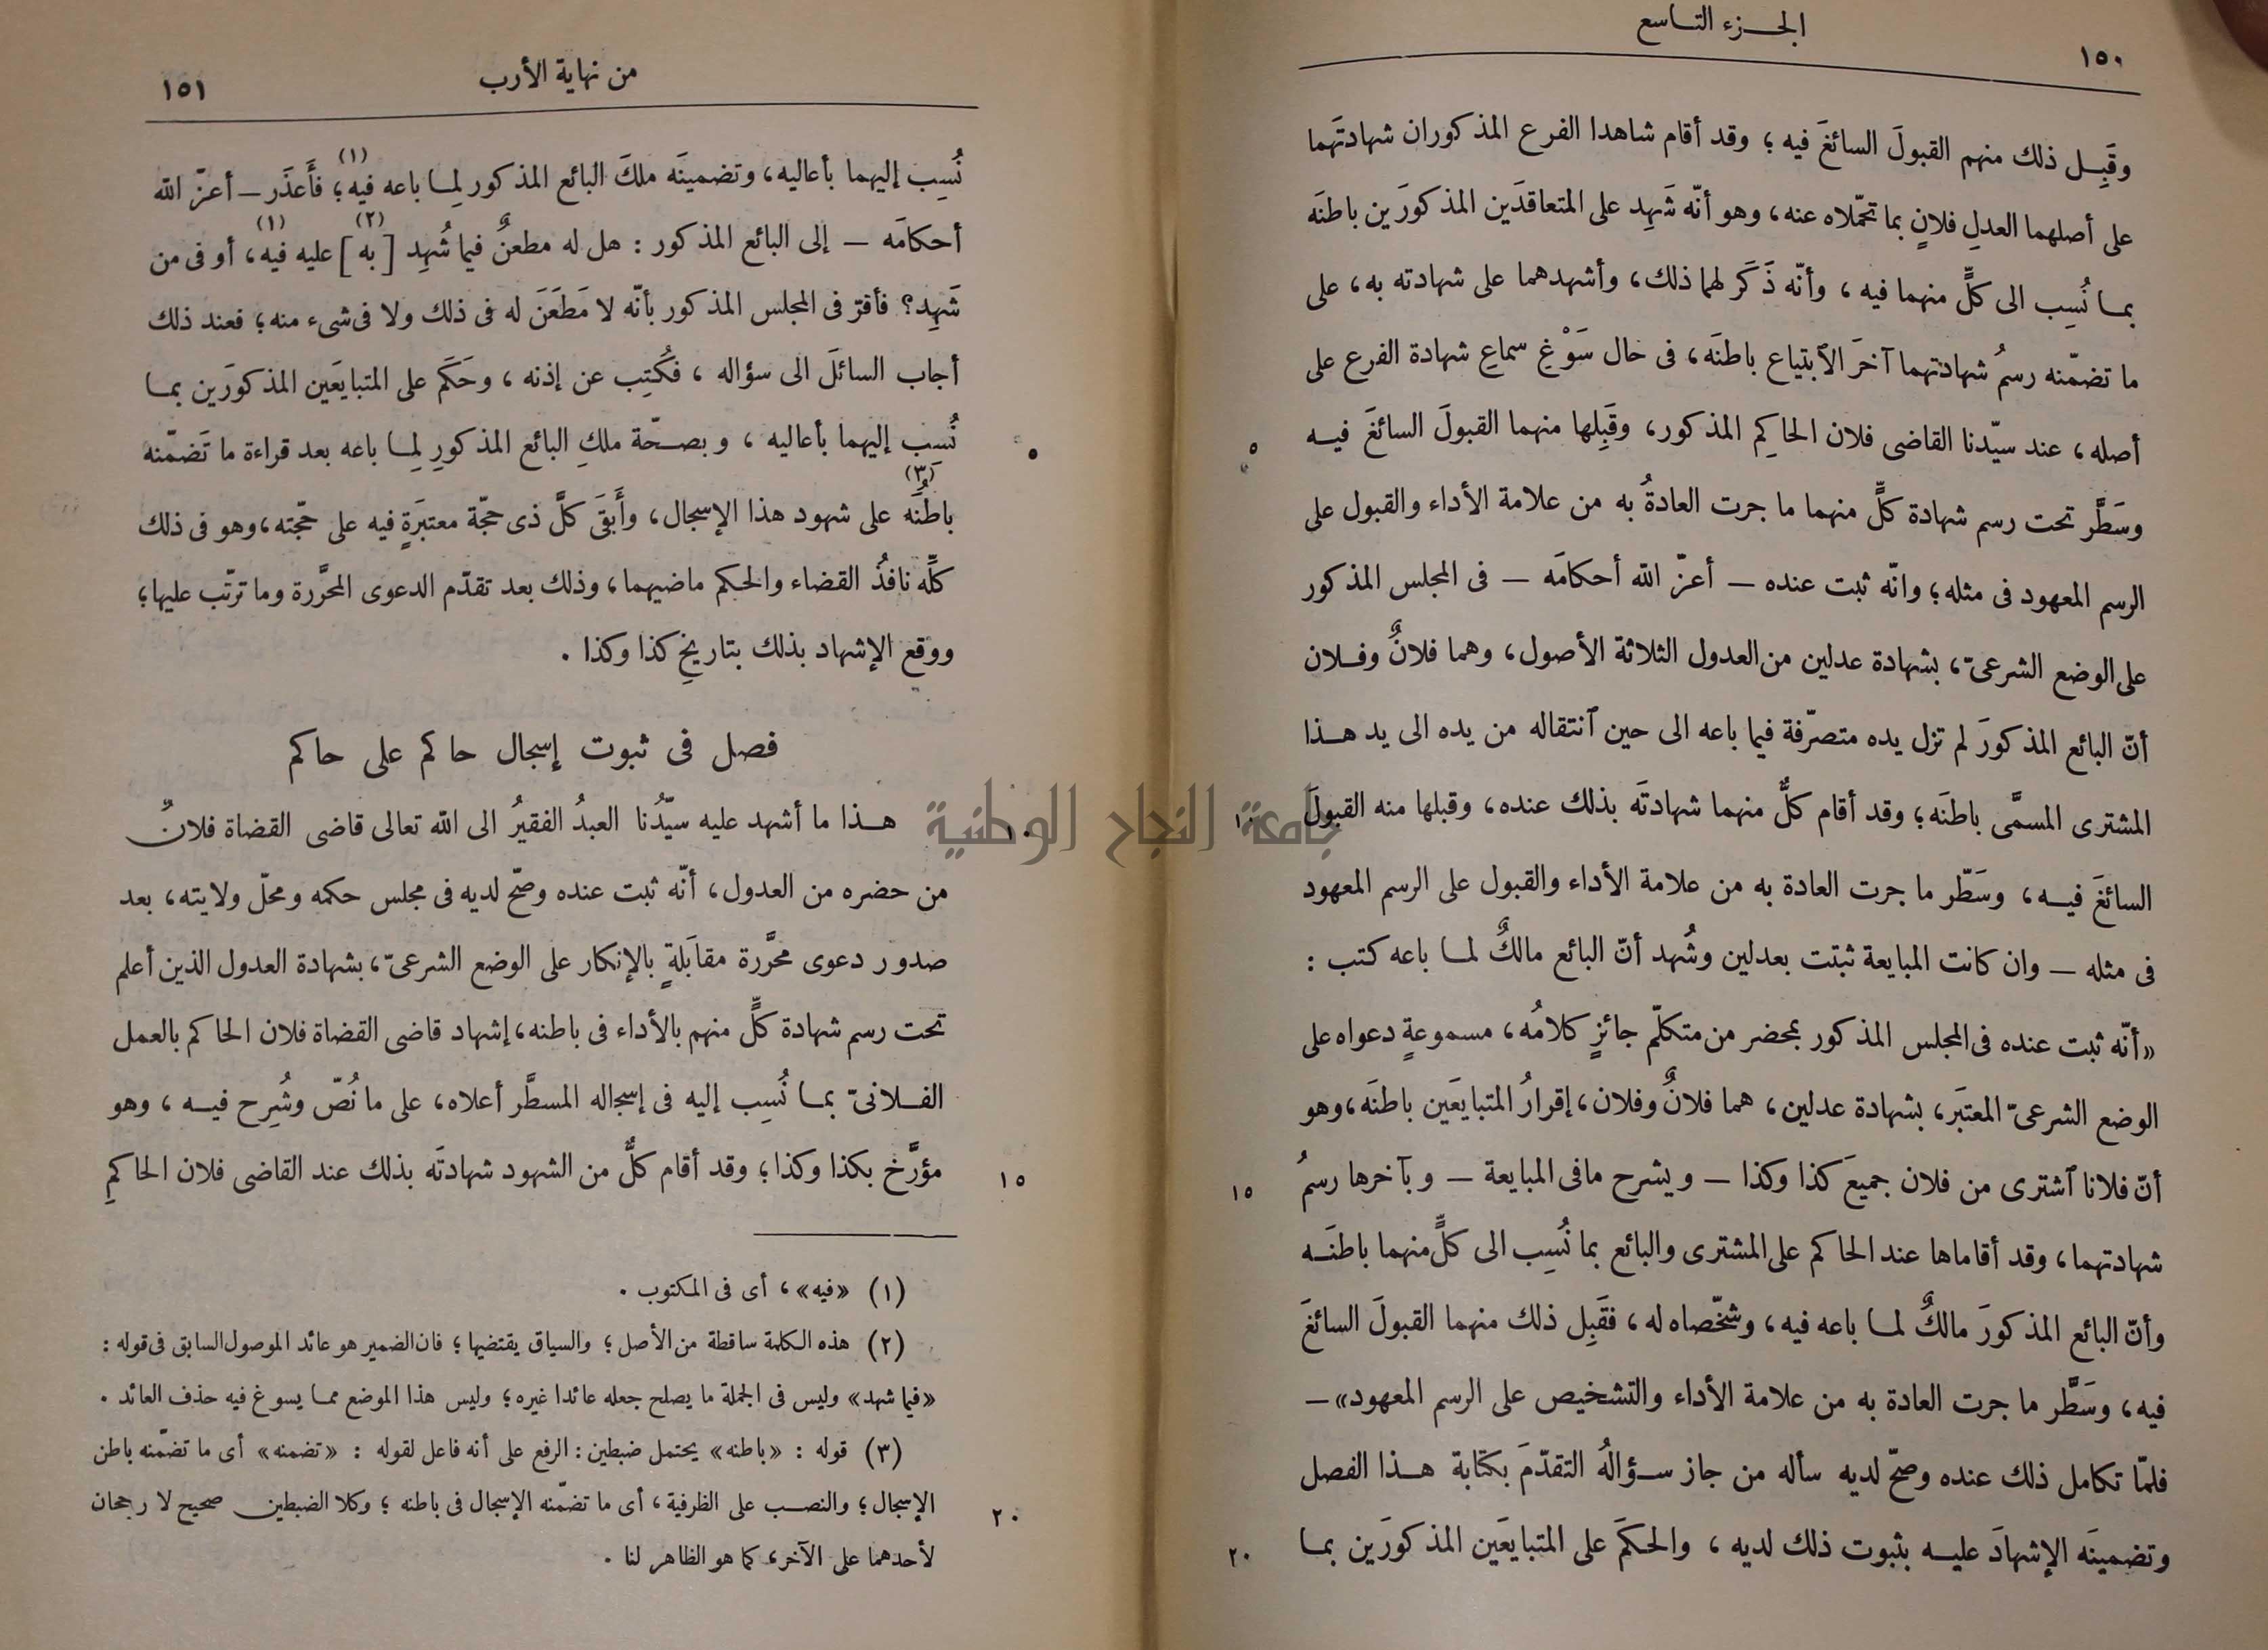 الجزء التاسع
١٥٠
وقَبِل ذلك منهم القبولَ السائغَ فيه؛ وقد أقام شاهدا الفرع المذكوران شهادتَهما
على أصلهما العدلِ فلانٍ بما تحمّلاه عنه، وهو أنّه شَهِد على المتعاقدَين المذكورَين باطنَه
بما نُسِب الى كلٍّ منهما فيه، وأنّه ذَكَر لهما ذلك، وأشهدهما على شهادته به، على
ما تضمّنه رسمُ شهادتهما آخرَ الٱبتياع باطنَه، فى حال سَوْغِ سماعِ شهادة الفرع على
أصله، عند سيّدنا القاضى فلان الحاكِم المذكور، وقَبِلها منهما القبولَ السائغَ فيه
٥
وسَطَّر تحت رسم شهادة كلٍّ منهما ما جرت العادةُ به من علامة الأداء والقبول على
الرسم المعهود فى مثله؛ وانّه ثبت عنده — أعزّ الله أحكامَه — فى المجلس المذكور
على الوضع الشرعىّ، بشهادة عدلين من العدول الثلاثة الأصول، وهما فلانٌ وفلان
أنّ البائع المذكورَ لم تزل يده متصرّفة فيما باعه الى حين ٱنتقاله من يده الى يد هذا
المشترى المسمَّى باطنَه؛ وقد أقام كلٌّ منهما شهادتَه بذلك عنده، وقبلها منه القبولَ
١٠
السائغَ فيه، وسَطّر ما جرت العادة به من علامة الأداء والقبول على الرسم المعهود
فى مثله — وان كانت المبايعة ثبتت بعدلين وشُهد أنّ البائع مالكٌ لما باعه كتب :
«أنّه ثبت عنده فى المجلس المذكور بمحضر من متكلّم جائزٍ كلامُه، مسموعةٍ دعواه على
الوضع الشرعىّ المعتبَر، بشهادة عدلين، هما فلانٌ وفلان، إقرارُ المتبايعَين باطنَه، وهو
أنّ فلانا ٱشترى من فلان جميعَ كذا وكذا — ويشرح مافى المبايعة — وبآخرها رسمُ
١٥
شهادتهما، وقد أقاماها عند الحاكم على المشترى والبائع بما نُسِب الى كلٍّ منهما باطنَه
وأنّ البائع المذكورَ مالكٌ لما باعه فيه، وشخّصاه له، فقَبِل ذلك منهما القبولَ السائغَ
فيه، وسَطَّر ما جرت العادة به من علامة الأداء والتشخيص على الرسم المعهود»—
فلمّا تكامل ذلك عنده وصحّ لديه سأله من جاز سؤالهُ التقدّمَ بكتابة هذا الفصل
وتضمينَه الإشهادَ عليه بثبوت ذلك لديه، والحكمَ على المتبايعَين المذكورَين بما
٢٠
من نهاية الأرب
١٥١
نُسِب إليهما بأعاليه، وتضمينَه ملكَ البائع المذكور لِما باعه فيه(١)؛ فأَعذَر— أعزّ الله
أحكامَه — إلى البائع المذكور : هل له مطعنٌ فيما شُهِد [به](٢) عليه فيه(١)، أو فى من
شَهِد؟ فأقرّ فى المجلس المذكور بأنّه لا مَطعَنَ له فى ذلك ولا فى شىء منه؛ فعند ذلك
أجاب السائلَ الى سؤاله، فكُتِب عن إذنه، وحَكَم على المتبايعَين المذكورَين بما
نُسِب إليهما بأعاليه، وبصحّة ملكِ البائع المذكورِ لِما باعه بعد قراءة ما تَضمّنه
٥
باطنُه(٣) على شهود هذا الإسجال، وأَبقَى كلَّ ذى حجّة معتبَرةٍ فيه على حجّته، وهو فى ذلك
كلِّه نافذُ القضاء والحكم ماضيهما، وذلك بعد تقدّم الدعوى المحرَّرة وما ترتّب عليها؛
ووقع الإشهاد بذلك بتاريخِ كذا وكذا .
فصل فى ثبوت إسجال حاكم على حاكم
هذا ما أشهد عليه سيّدُنا العبدُ الفقيرُ الى الله تعالى قاضى القضاة فلانٌ
١٠
جامعة النجاح الوطنية
من حضره من العدول، أنّه ثبت عنده وصحّ لديه فى مجلس حكمه ومحلّ ولايته، بعد
صدور دعوى محرَّرة مقابَلةٍ بالإنكار على الوضع الشرعىّ، بشهادة العدول الذين أعلم
تحت رسم شهادة كلٍّ منهم بالأداء فى باطنه، إشهاد قاضى القضاة فلان الحاكم بالعمل
الفلانىّ بما نُسِب إليه فى إسجاله المسطَّر أعلاه، على ما نُصّ وشُرِح فيه، وهو
مؤرَّخ بكذا وكذا؛ وقد أقام كلٌّ من الشهود شهادتَه بذلك عند القاضى فلان الحاكمِ
١٥
(١) «فيه»، أى فى المكتوب .
(٢) هذه الكلمة ساقطة من الأصل؛ والسياق يقتضيها؛ فان الضمير هو عائد الموصول السابق فى قوله :
«فيما شهد» وليس فى الجملة ما يصلح جعله عائدا غيره؛ وليس هذا الموضع مما يسوغ فيه حذف العائد .
(٣) قوله : «باطنه» يحتمل ضبطين : الرفع على أنه فاعل لقوله : «تضمنه» أى ما تضمّنه باطن
الإسجال؛ والنصب على الظرفية، أى ما تضمّنه الإسجال فى باطنه؛ وكلا الضبطين صحيح لا رجحان
٢٠
لأحدهما على الآخر، كما هو الظاهر لنا .